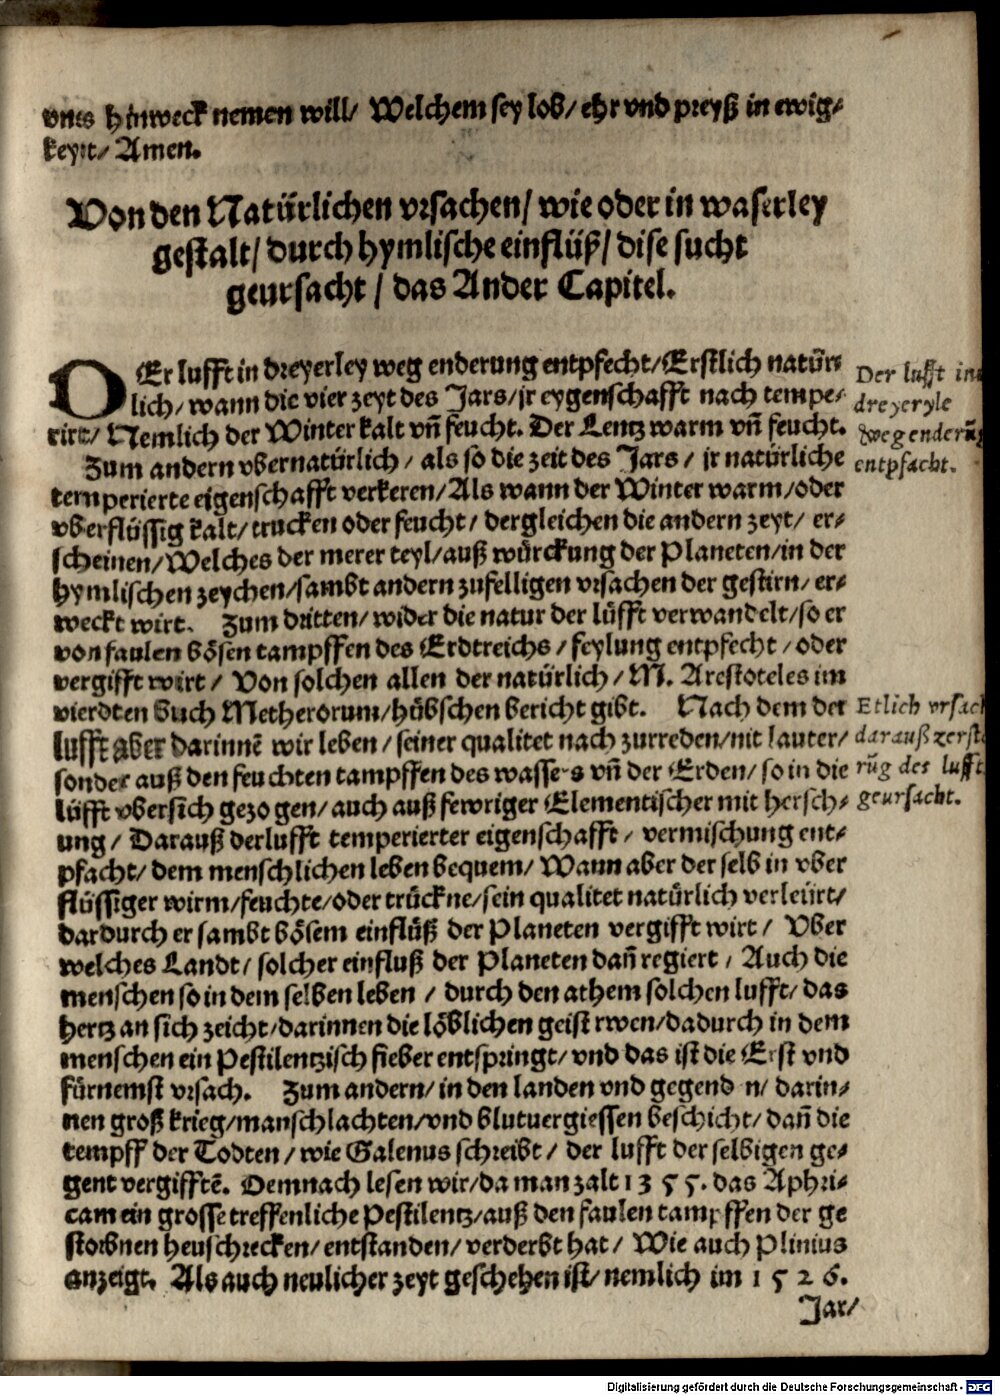 vnns hinweck nemen will/ Welchem sey lob/ ehr vnd preyß in ewig⸗
keyt/ Amen.
Von den Natürlichen vrsachen/ wie oder in waserley
gestalt/ durch hymlische einflüß/ dise sucht
geursacht / das Ander Capitel.
DEr lufft in dreyerley weg enderung entpfecht/ Erstlich natür⸗
lich/ wann die vier zeyt des Jars/ jr eygenschafft nach tempe⸗
rirt/ Nemlich der Winter kalt vñ feucht. Der Lentz warm vñ feucht.
Zum andern vbernatürlich / als so die zeit des Jars / jr natürliche
temperierte eigenschafft verkeren/ Als wann der Winter warm/ oder
vberflüssig kalt/ trucken oder feucht / dergleichen die andern zeyt/ er⸗
scheinen/ Welches der merer teyl/ auß würckung der Planeten/ in der
hymlischen zeychen/ sambt andern zufelligen vrsachen der gestirn/ er⸗
weckt wirt. Zum dritten/ wider die natur der lüfft verwandelt/ so er
von faulen bösen tampffen des Erdtreichs / feylung entpfecht / oder
vergifft wirt / Von solchen allen der natürlich / M. Arestoteles im
vierdten Buch Metherorum/ hübschen bericht gibt. Nach dem der
lufft aber darinnē wir leben / seiner qualitet nach zurreden/ nit lauter/
sonder auß den feuchten tampffen des wassers vñ der Erden/ so in die
lüfft vbersich gezogen/ auch auß fewriger Elementischer mit hersch⸗
ung / Darauß der lufft temperierter eigenschafft / vermischung ent⸗
pfacht/ dem menschlichen leben bequem/ Wann aber der selb in vber
flüssiger wirm/ feuchte/ oder trückne/ sein qualitet natürlich verleürt/
dardurch er sambt bösem einflüß der Planeten vergifft wirt / Vber
welches Landt/ solcher einfluß der Planeten dañ regiert / Auch die
menschen so in dem selben leben / durch den athem solchen lufft/ das
hertz an sich zeicht/ darinnen die löblichen geist rwen/ dadurch in dem
menschen ein Pestilentzisch fieber entspringt/ vnd das ist die Erst vnd
fürnemst vrsach. Zum andern/ in den landen vnd gegend n/ darin⸗
nen groß krieg/ manschlachten/ vnd blutuergiessen beschicht/ dañ die
tempff der Todten / wie Galenus schreibt / der lufft der selbigen ge⸗
gent vergifftē. Demnach lesen wir/ da man zalt 1355. das Aphri⸗
cam ein grosse treffenliche Pestilentz/ auß den faulen tampffen der ge
storbnen heuschrecken/ entstanden/ verderbt hat / Wie auch Plinius
anzeigt. Als auch neulicher zeyt geschehen ist/ nemlich im 1526.
Jar/
Der lufft inn
dreyeryle
weg enderūg
entpfacht.
Etlich vrsach
darauß zerstö
rūg des lufft
geursacht.
Digitalisierung gefördert durch die Deutsche Forschungsgemeinschaft - DFG